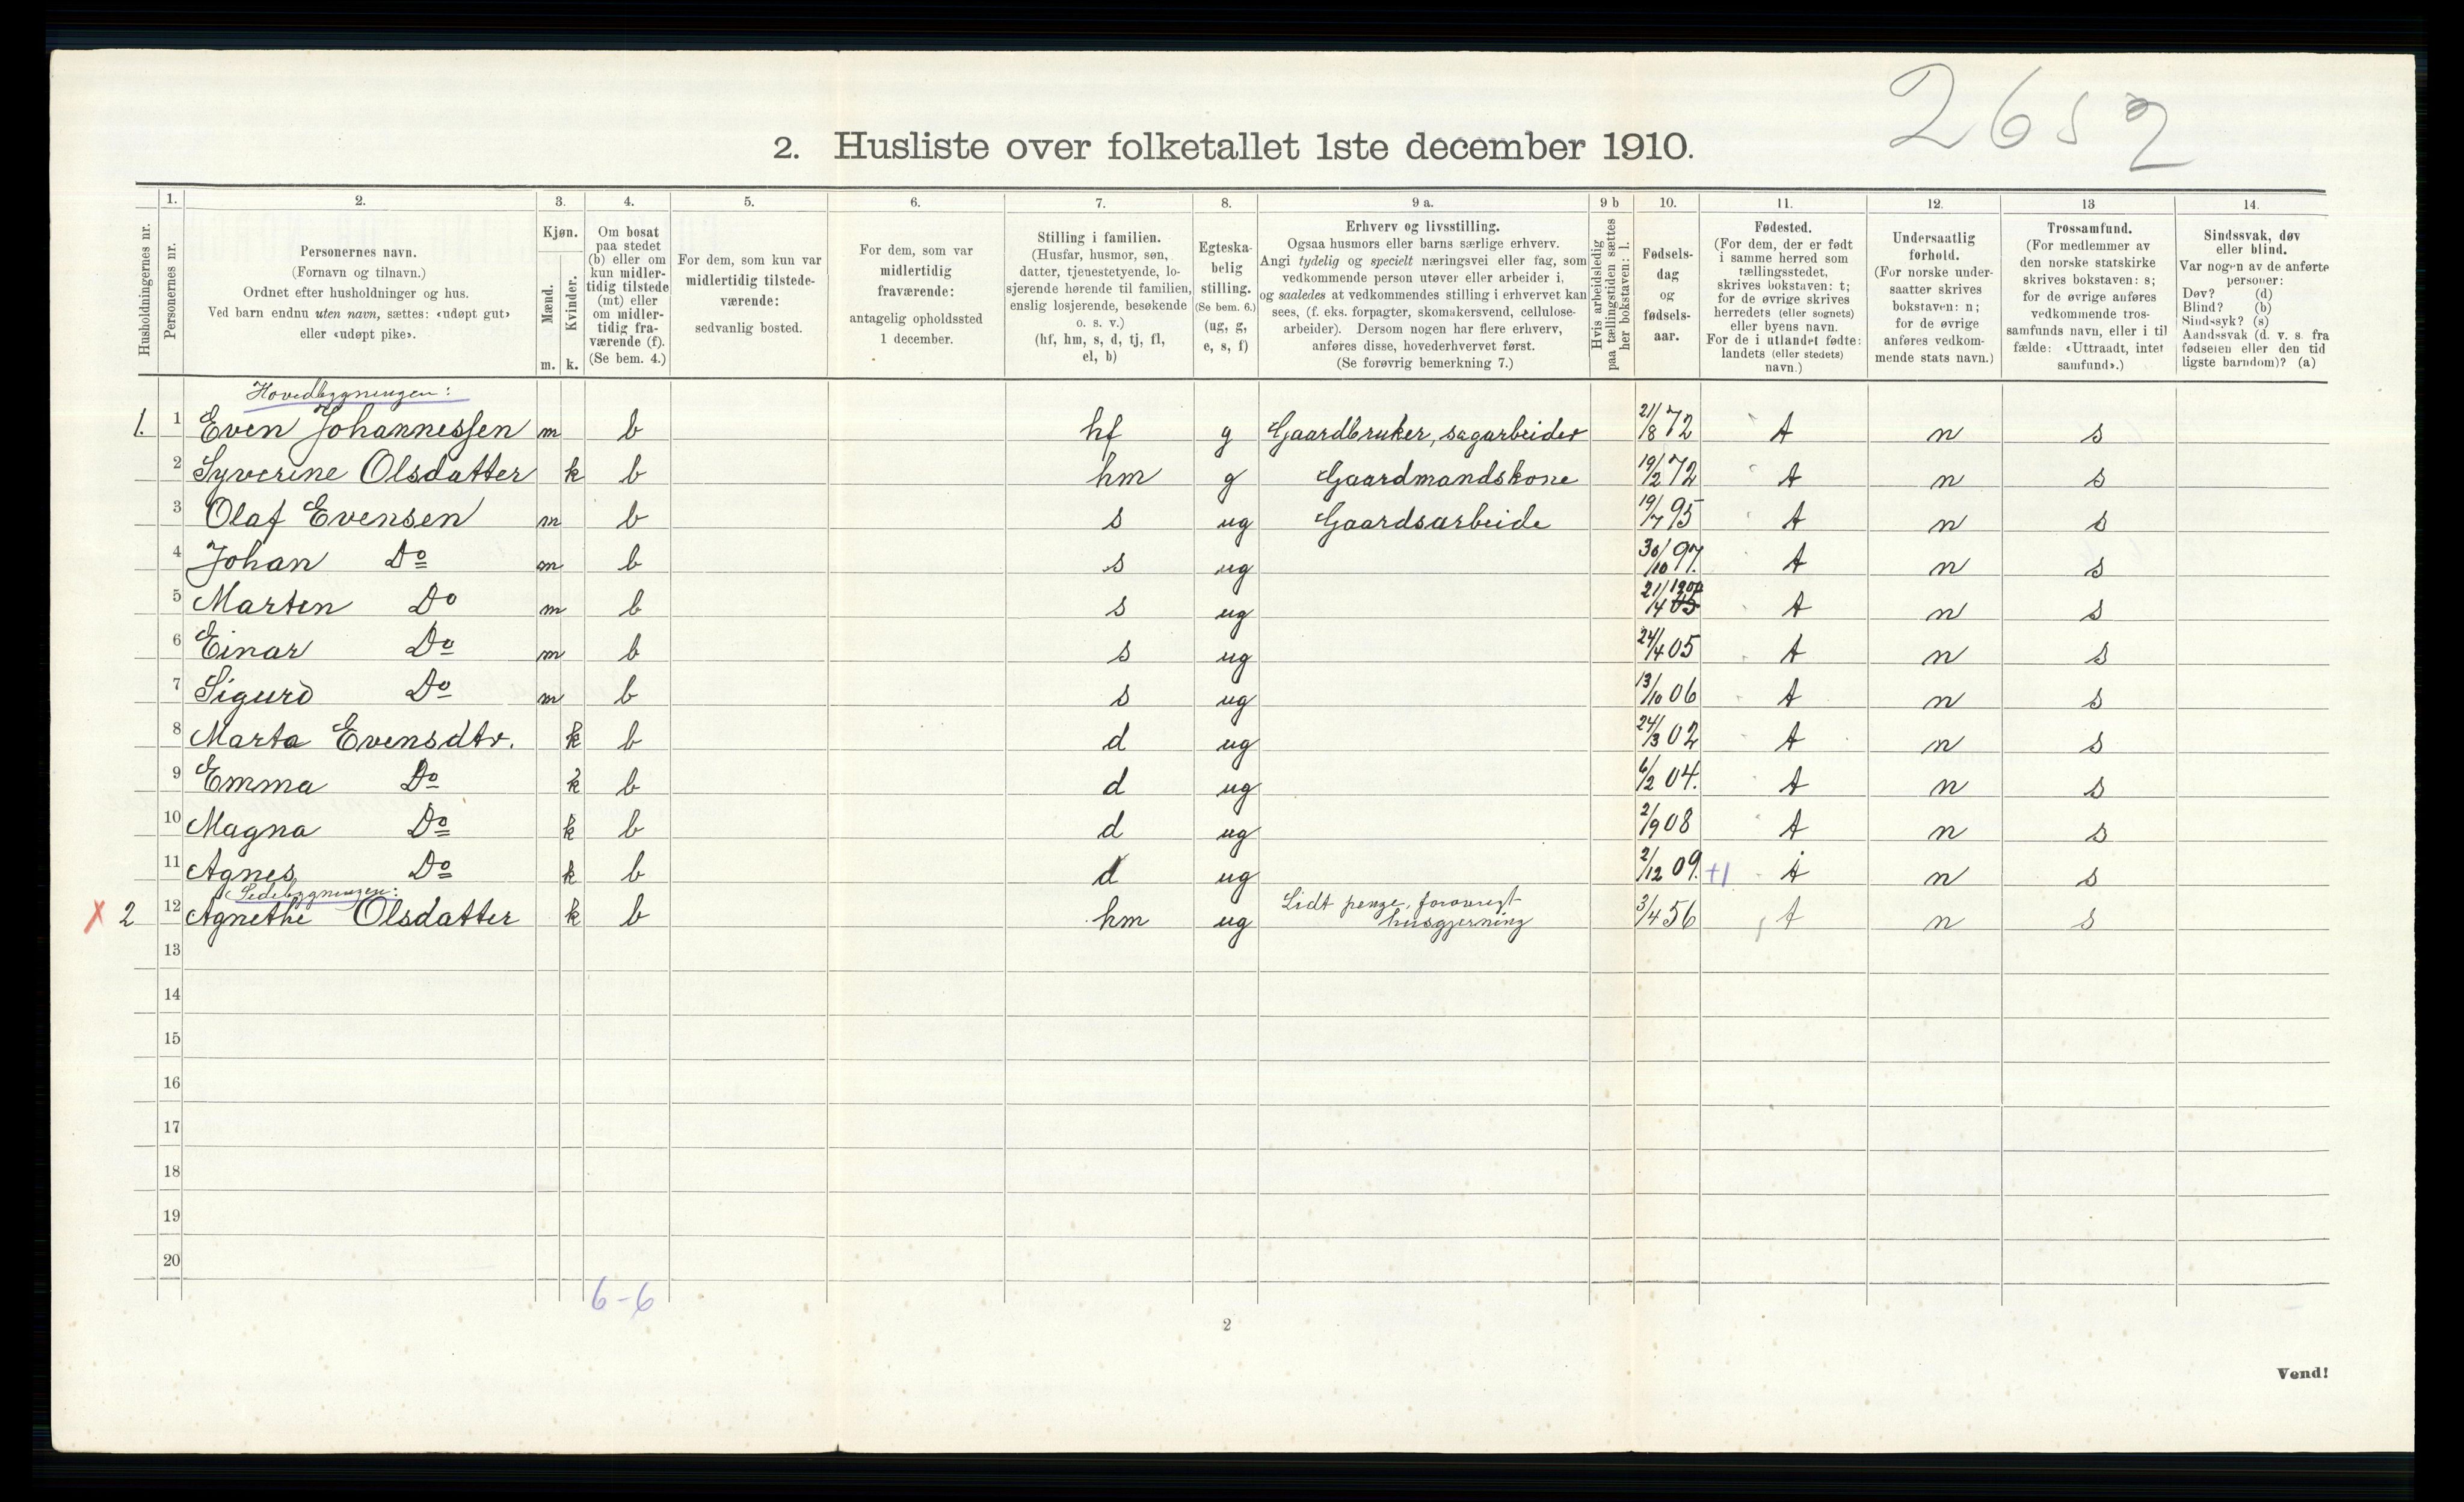 2652
2. Husliste over folketallet 1ste december 1910.
Husholdningernes nr.
1. Personernes nr.
2. Personernes navn. (Fornavn og tilnavn.) Ordnet efter husholdninger og hus. Ved barn endnu uten navn, sættes: «udøpt gut» eller «udøpt pike».
3. Kjøn. Mænd. m. Kvinder. k.
4. Om bosat paa stedet (b) eller om kun midlertidig tilstede (mt) eller om midlertidig fraværende (f). (Se bem. 4.)
5. For dem, som kun var midlertidig tilstedeværende: sedvanlig bosted.
6. For dem, som var midlertidig fraværende: antagelig opholdssted 1 december.
7. Stilling i familien. (Husfar, husmor, søn, datter, tjenestetyende, losjerende hørende til familien, enslig losjerende, besøkende o. s. v.) (hf, hm, s, d, tj, fl, el, b)
8. Egteskabelig stilling. (Se bem. 6.) (ug, g, e, s, f)
9 a. Erhverv og livsstilling. Ogsaa husmors eller barns særlige erhverv. Angi tydelig og specielt næringsvei eller fag, som vedkommende person utøver eller arbeider i, og saaledes at vedkommendes stilling i erhvervet kan sees, (f. eks. forpagter, skomakersvend, cellulosearbeider). Dersom nogen har flere erhverv, anføres disse, hovederhvervet først. (Se forøvrig bemerkning 7.)
9 b Hvis arbeidsledig paa tællingstiden sættes her bokstaven: l.
10. Fødselsdag og fødselsaar.
11. Fødested. (For dem, der er født i samme herred som tællingsstedet, skrives bokstaven: t; for de øvrige skrives herredets (eller sognets) eller byens navn. For de i utlandet fødte: landets (eller stedets) navn.)
12. Undersaatlig forhold. (For norske undersaatter skrives bokstaven: n; for de øvrige anføres vedkommende stats navn.)
13 Trossamfund. (For medlemmer av den norske statskirke skrives bokstaven: s; for de øvrige anføres vedkommende trossamfunds navn, eller i tilfælde: «Uttraadt, intet samfund».)
14. Sindssvak, døv eller blind. Var nogen av de anførte personer: Døv? (d) Blind? (b) Sindssyk? (s) Aandssvak (d. v. s. fra fødselen eller den tidligste barndom)? (a)
Hovedbygningen:
1. 1 Even Johannessen m b hf g Gaardbruker, sagarbeider 21/8 72 t n s
2 Syverine Olsdatter k b hm g Gaardmandskone 19/2 72 t n s
3 Olaf Evensen m b s ug Gaardsarbeide 19/7 95 t n s
4 Johan Do m b s ug 30/10 97. t n s
5 Marten Do m b s ug 21/4 1900 t n s
6 Einar Do m b s ug 24/4 05 t n s
7 Sigurd Do m b s ug 13/10 06 t n s
8 Marta Evensdtr. k b d ug 24/3 02 t n s
9 Emma Do k b d ug 6/2 04. t n s
10 Magna Do k b d ug 2/9 08 t n s
11 Agnes Do k b d ug 2/12 09. +1 t n s
Sidebygningen:
x 2 12 Agnethe Olsdatter k b hm ug Lidt penge, forøvrigt husgjerning 3/4 56 t n s
13
14
15
16
17
18
19
20
6-6
2
Vend!